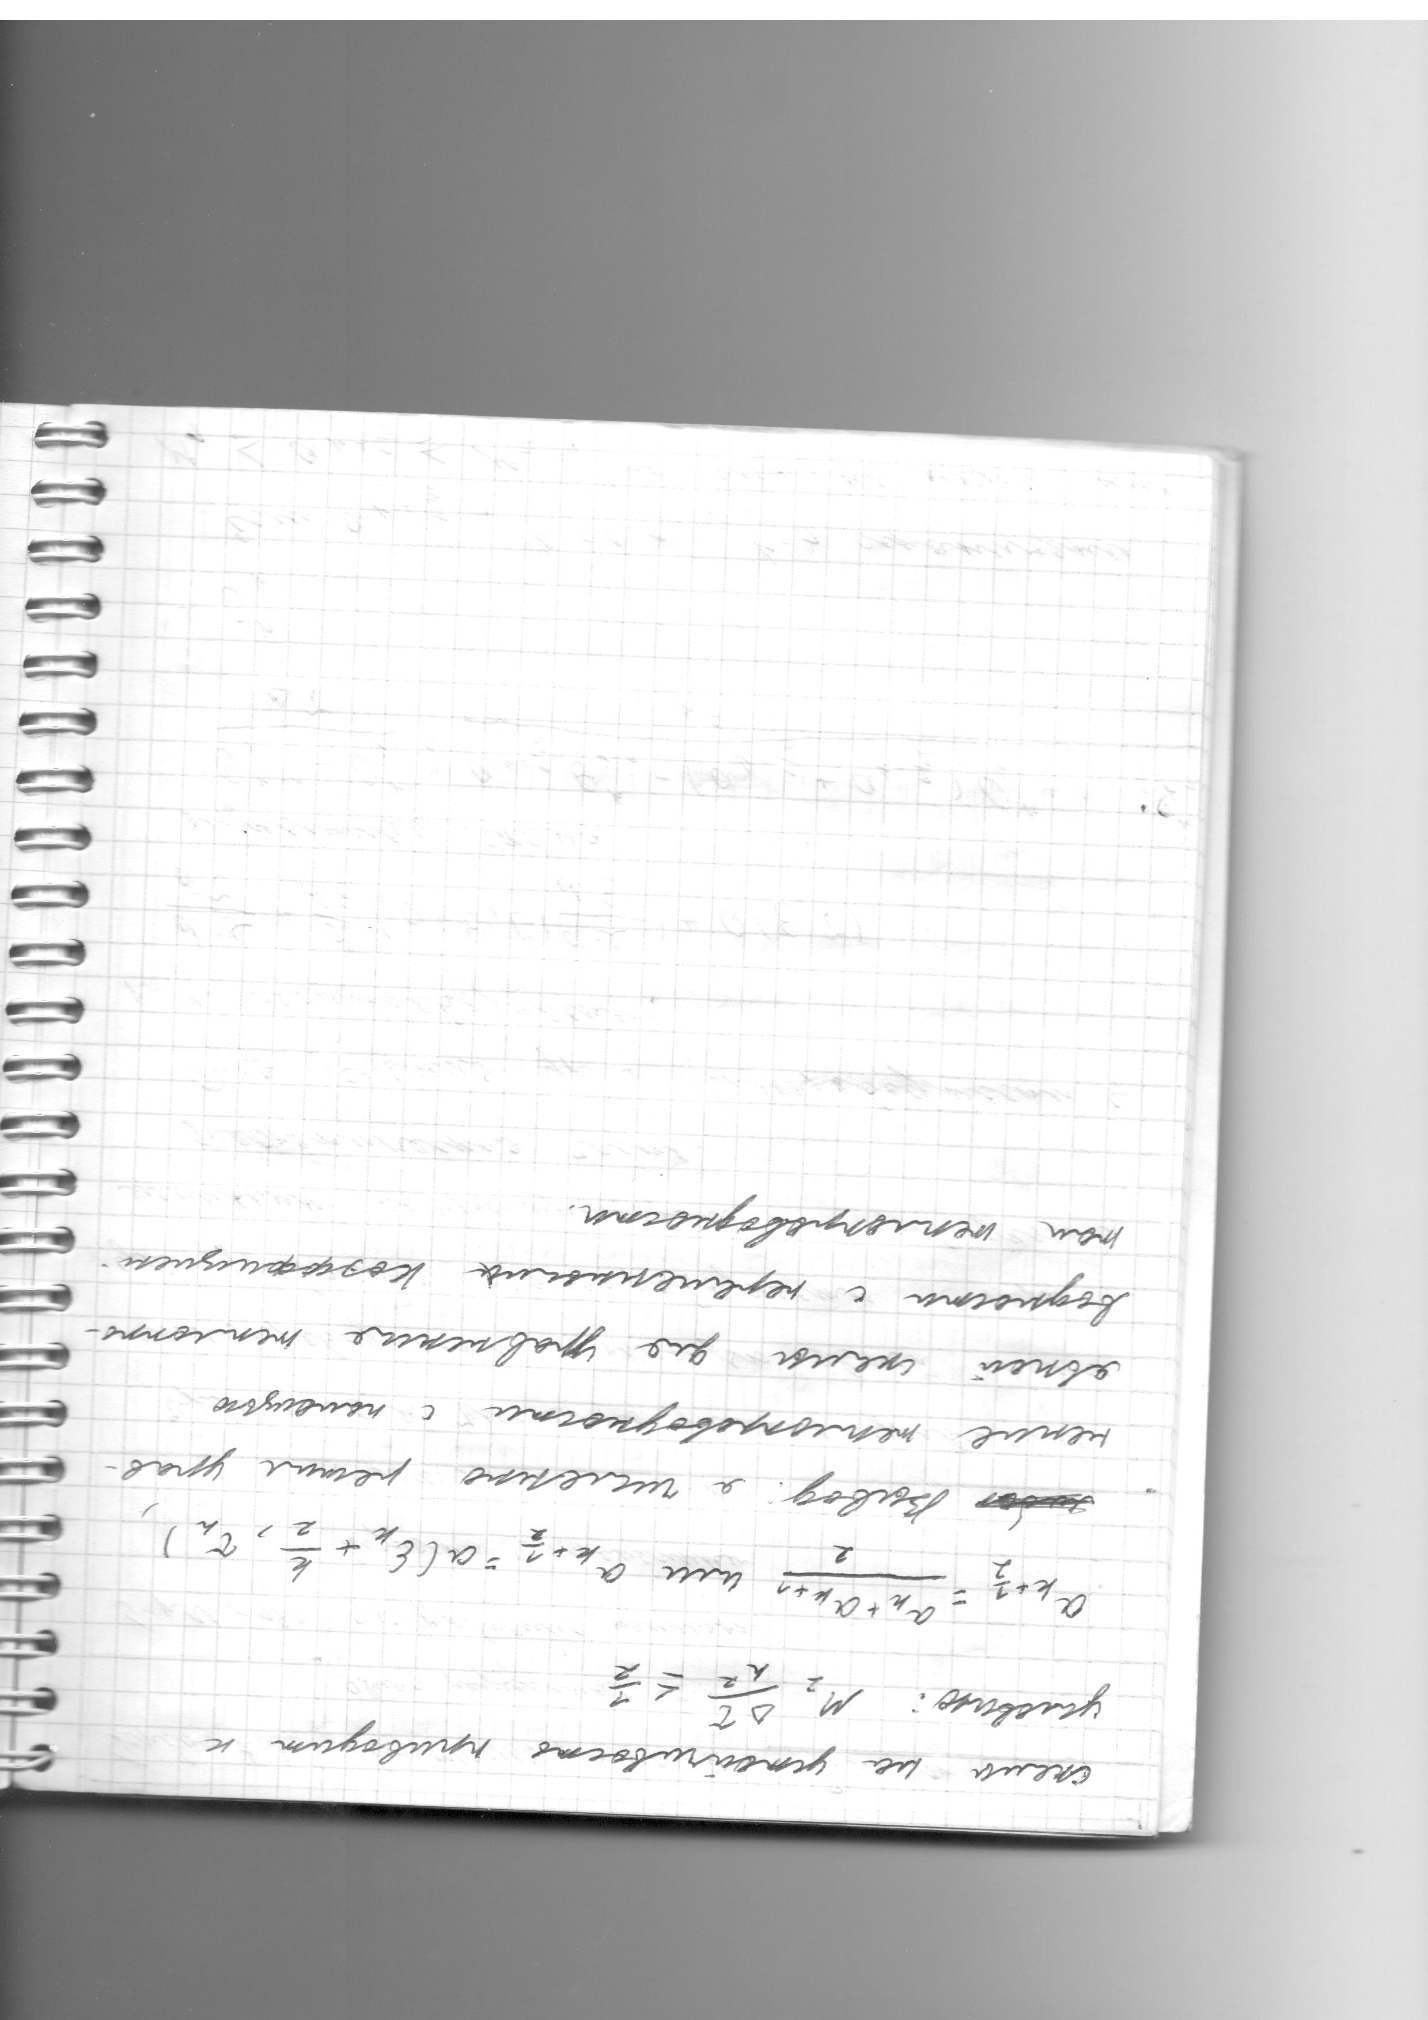 схемы на устойчивость приводит к
условию: M₂ Δτ/h² ≤ 1/2
a_{k+1/2} = (a_k + a_{k+1})/2 или a_{k+1/2} = a(ξ_k + h/2, τ_n),
Вывод: я численно решил урав-
нение теплопроводности с помощью
явной схемы для уравнение теплопро-
водности с переменным коэффициен-
том теплопроводности.